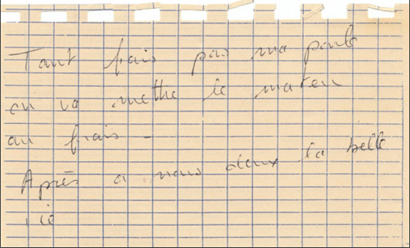 Tant fais pas ma poule
on va mettre le
au frais -
Après a nous deux la belle
vie